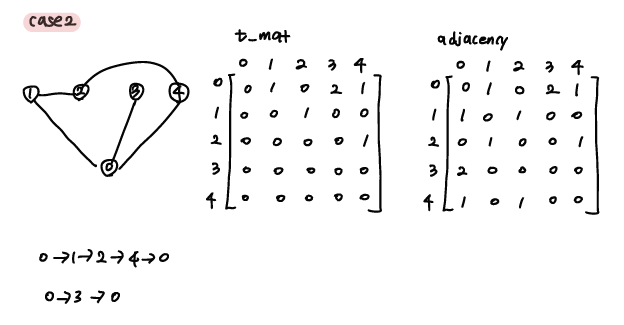 case2
t_mat
0 1 2 3 4
0 0 1 0 2 1
1 0 0 1 0 0
2 0 0 0 0 1
3 0 0 0 0 0
4 0 0 0 0 0
adjacency
0 1 2 3 4
0 0 1 0 2 1
1 1 0 1 0 0
2 0 1 0 0 1
3 2 0 0 0 0
4 1 0 1 0 0
1 2 3 4
0
0→1→2→4→0
0→3→0